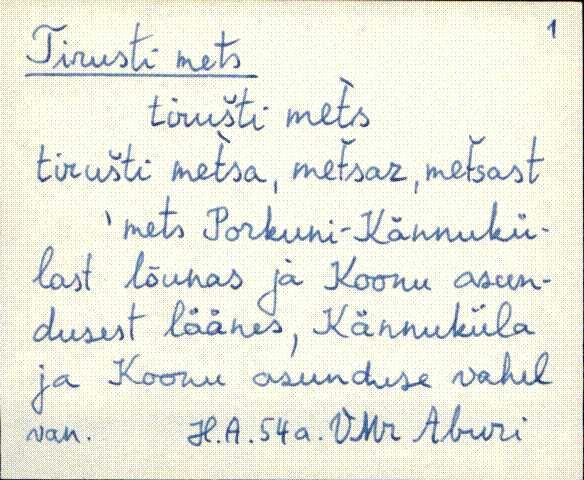 1
Tirusti mets
tirušti met̀s
tirušti met̀sa, met̆saz, met̆sast
'mets Porkuni-Kännukü-
last lõunas ja Koonu asun-
dusest läänes, Kännuküla
ja Koonu asunduse vahel
van. H.A. 54a. VMr Aburi